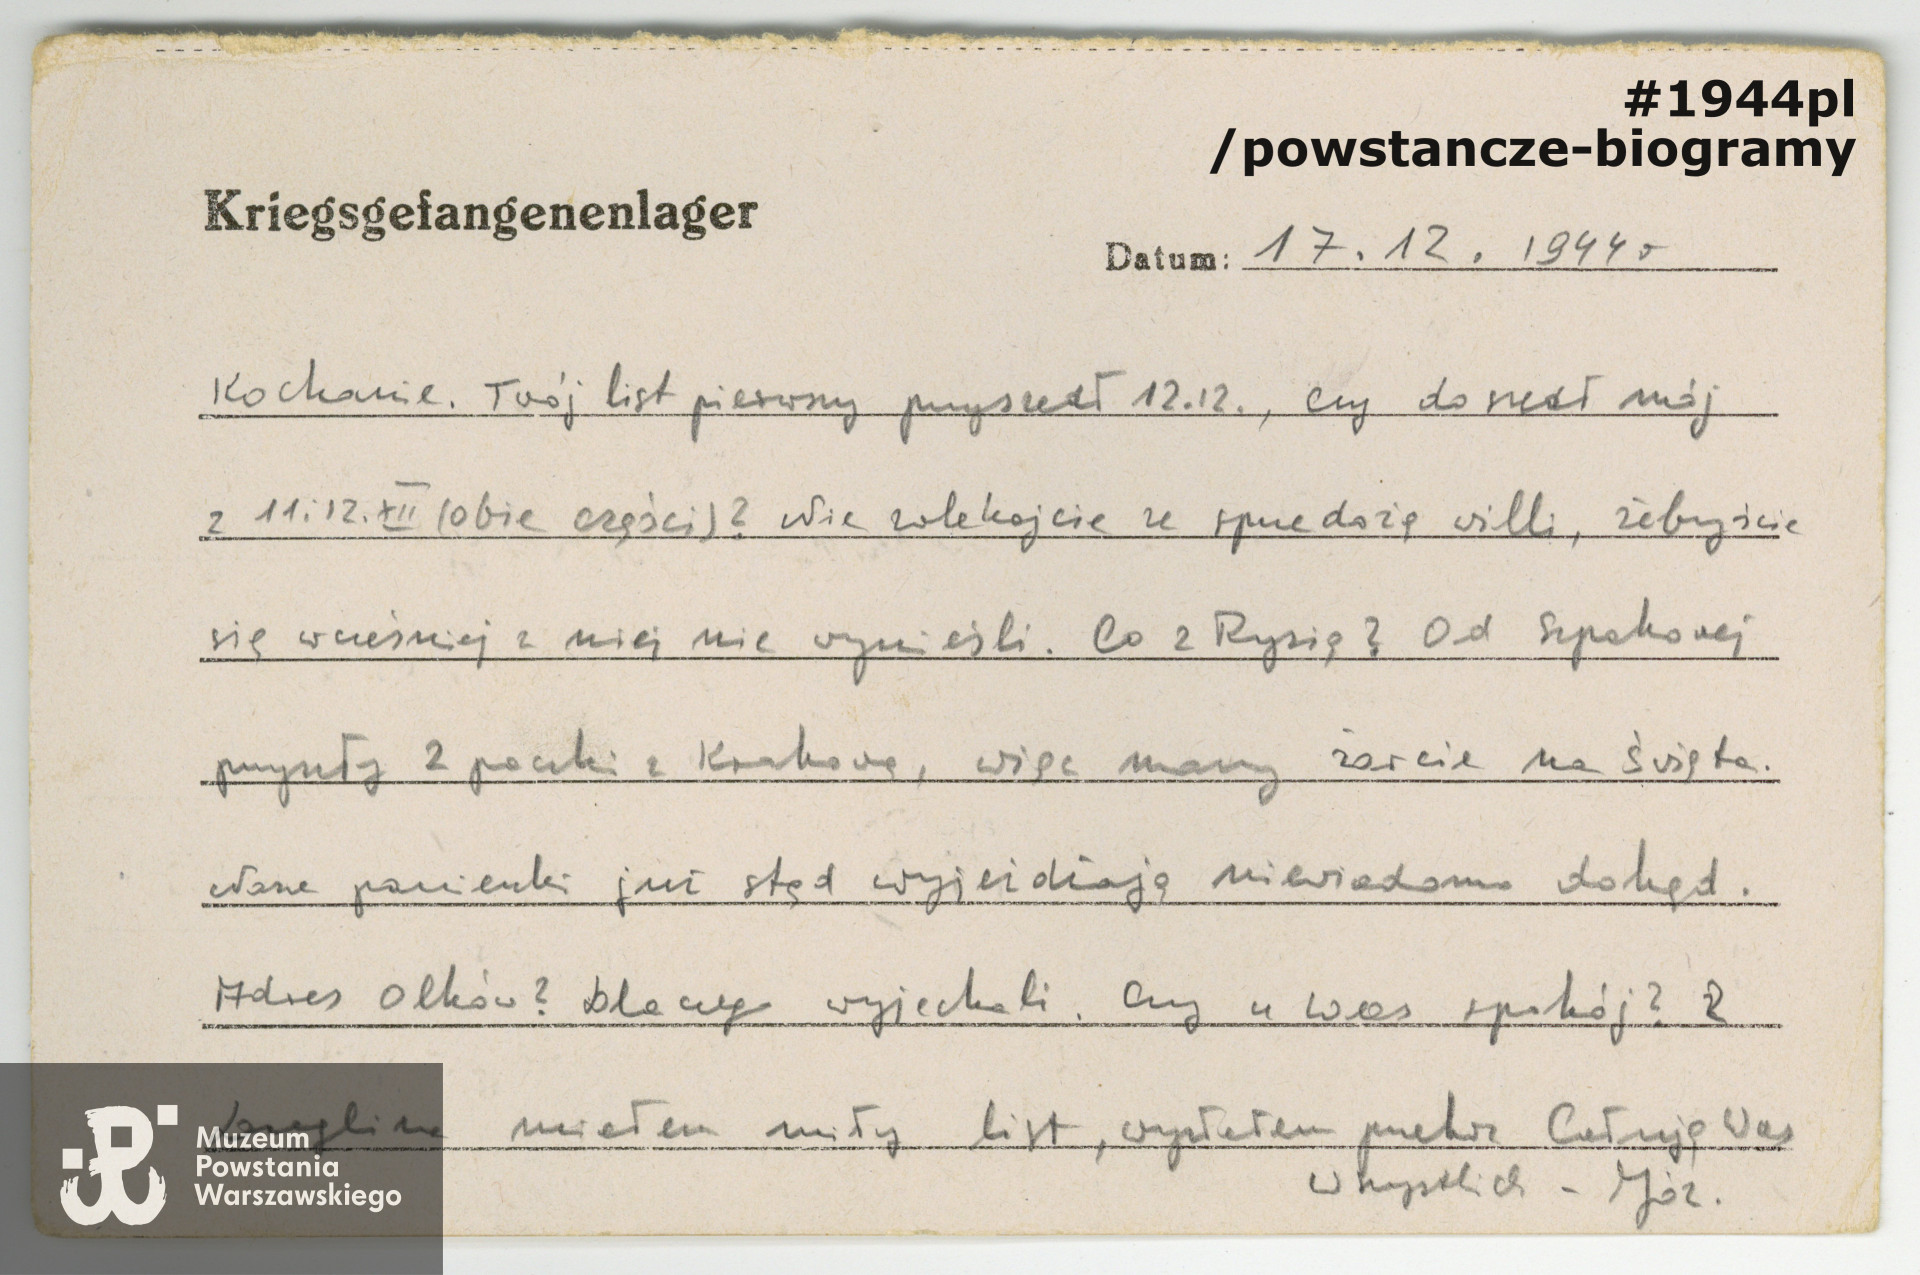 #1944pl
/powstancze-biogramy
Kriegsgefangenenlager
Datum: 17.12.1944r
Kochanie. Twój list pierwszy przyszedł 12.12., czy doszedł mój
z 11 i 12.XII (obie części)? Nie zwlekajcie ze sprzedażą willi, żebyście
się wcześniej z niej nie wynieśli. Co z Rysią? Od Szpakowej
przyszły 2 paczki z Krakowa, więc mamy żarcie na Święta.
Nasze panienki już stąd wyjeżdżają niewiadomo dokąd.
Adres Olków? Dlaczego wyjechali. Czy u Was spokój? Z
miałem miły list, wysłałem Całuję Was
wszystkich - Józ.
Muzeum
Powstania
Warszawskiego